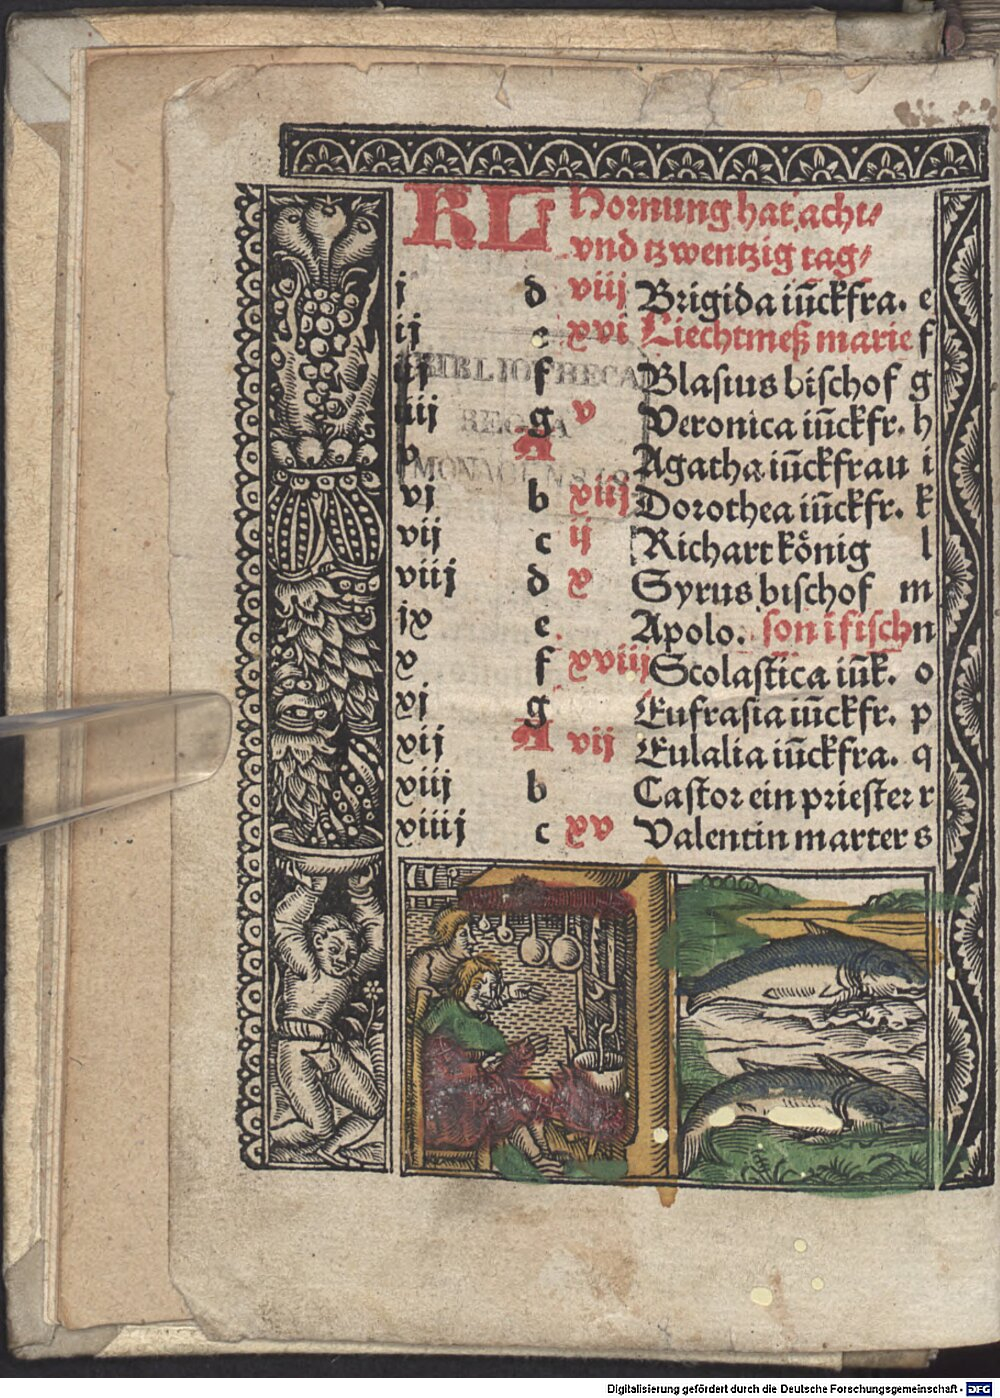 KL Hornung hat acht⸗
vnd tzwentzig tag⸗
j d viij Brigida iūckfra. e
ij e xvi Liechtmeß marie f
iij f Blasius bischof g
iiij g v Veronica iūckfr. h
v A Agatha iūckfrau i
vj b xiij Dorothea iūckfr. k
vij c ij Richart könig l
viij d x Syrus bischof m
ix e Apolo. son ī fisch n
x f xviij Scolastica iūk. o
xj g Eufrasia iūckfr. p
xij A vij Eulalia iūckfra. q
xiij b Castor ein priester r
xiiij c xv Valentin marter s
BIBLIOTHECA
REGIA
MONACENSIS
Digitalisierung gefördert durch die Deutsche Forschungsgemeinschaft - DFG